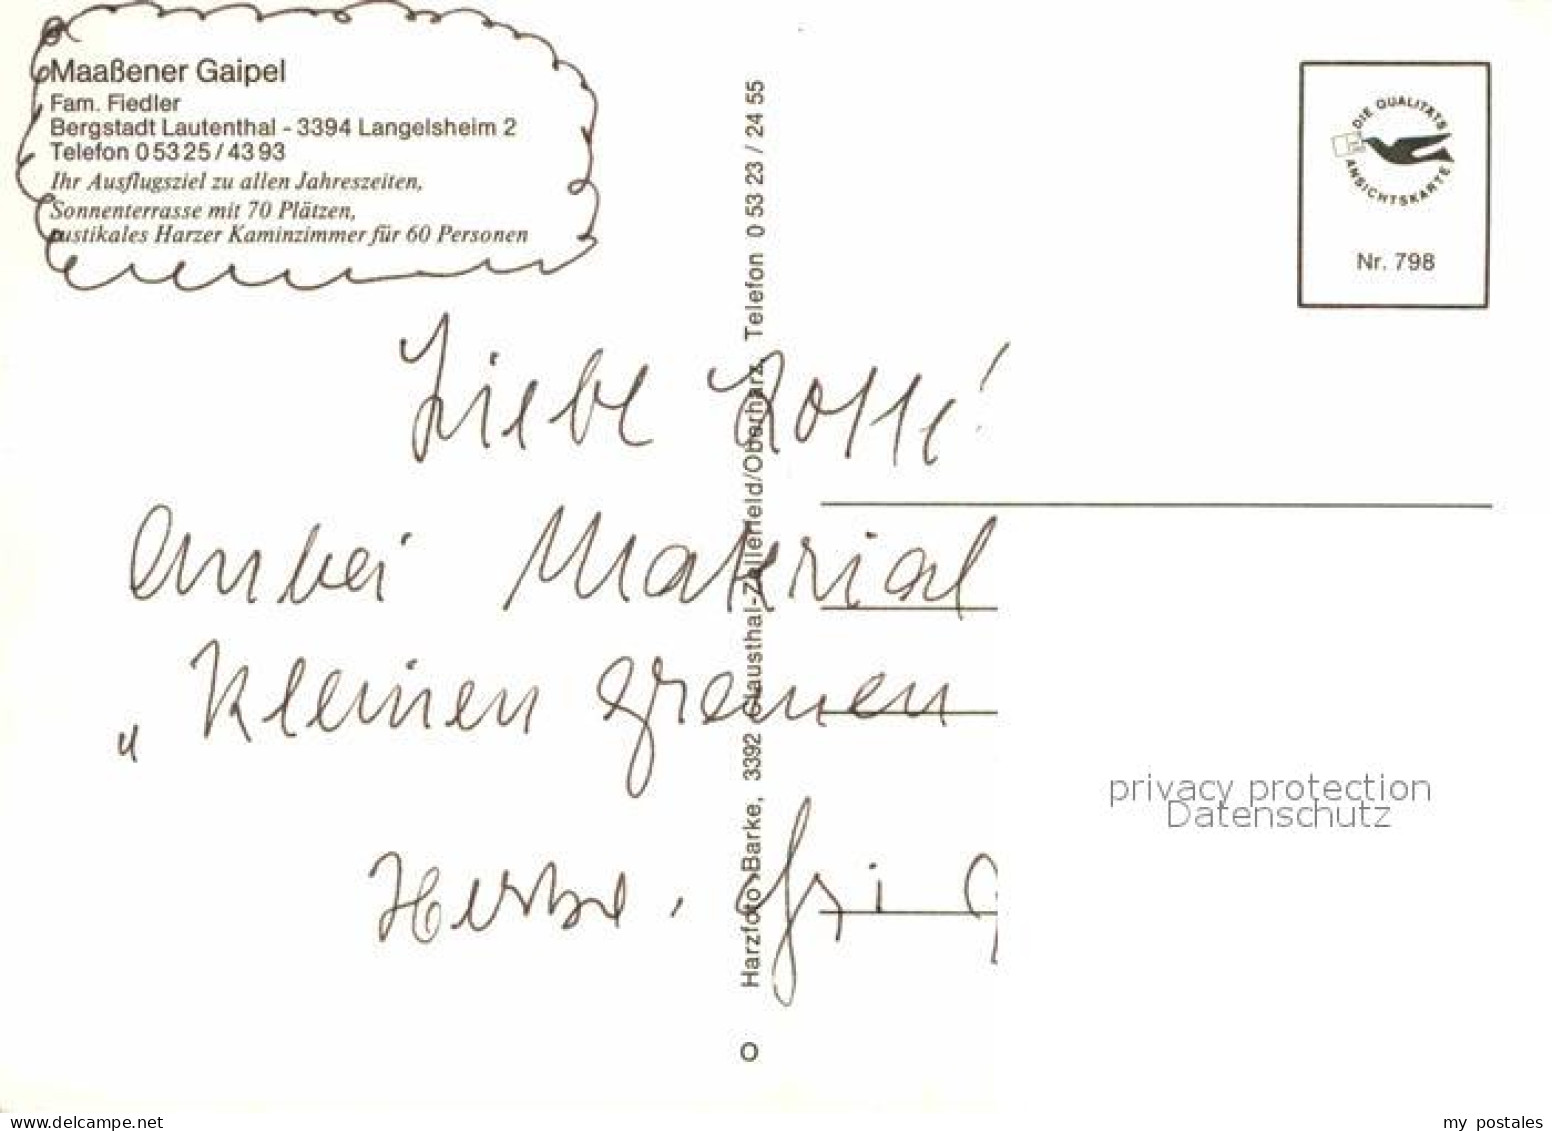 Maaßener Gaipel
Fam. Fiedler
Bergstadt Lautenthal - 3394 Langelsheim 2
Telefon 0 53 25 / 43 93
Ihr Ausflugsziel zu allen Jahreszeiten,
Sonnenterrasse mit 70 Plätzen,
rustikales Harzer Kaminzimmer für 60 Personen
Harzfoto Barke, 3392 Clausthal-Zellerfeld/Oberharz, Telefon 0 53 23 / 24 55
DIE QUALITÄTS
ANSICHTSKARTE
Nr. 798
Liebe Lotte!
Anbei Material
„ kleinen
privacy protection
Datenschutz
www.delcampe.net
my_postales